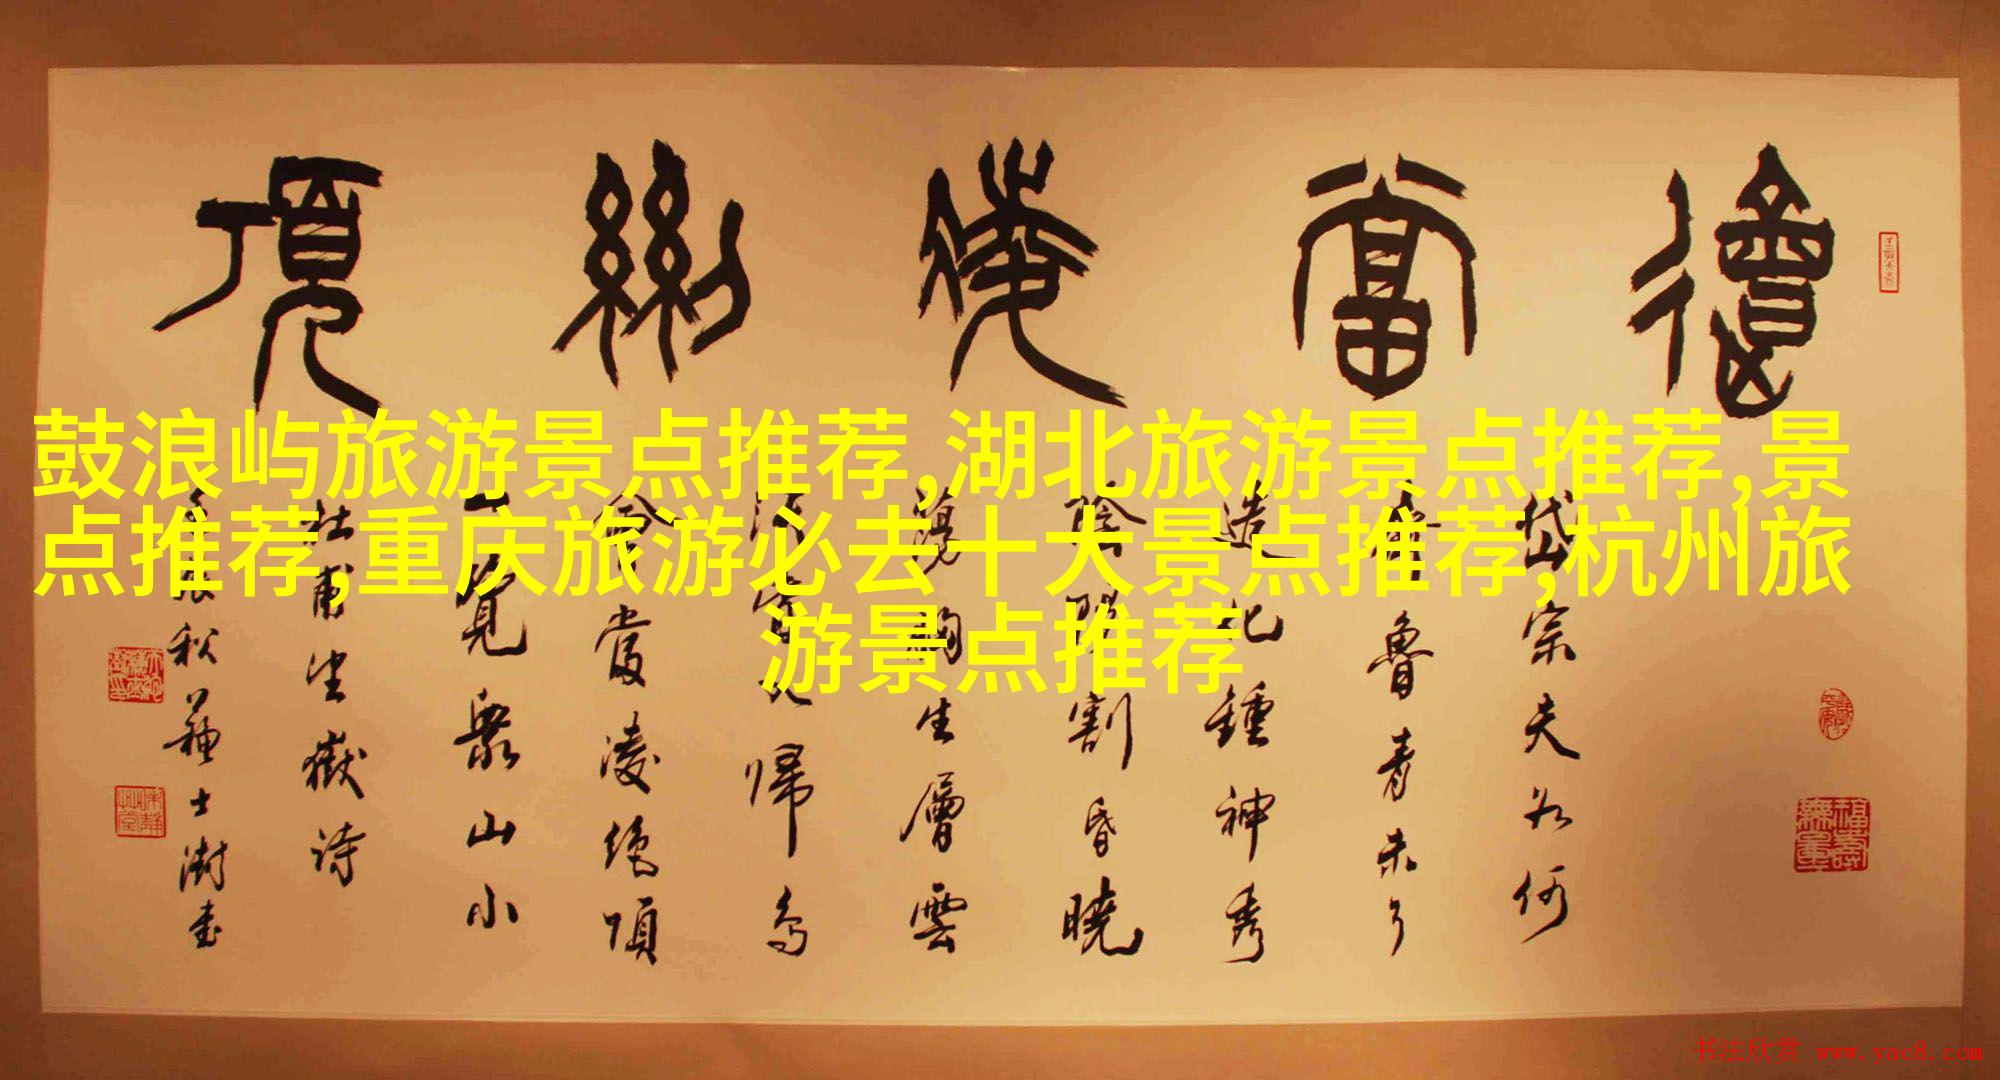 會當凌絕頂
鼓浪屿旅游景点推荐,湖北旅游景点推荐,景
点推荐,重庆旅游必去十大景点推荐,杭州旅
游景点推荐
岱宗夫如何
齊魯青未了
造化鍾神秀
陰陽割昏曉
蕩胸生層雲
決眥入歸鳥
會當凌絕頂
一覽衆山小
杜甫望嶽詩
秋蘇士澍書
福壽無量
书法欣赏 www.yac8.com